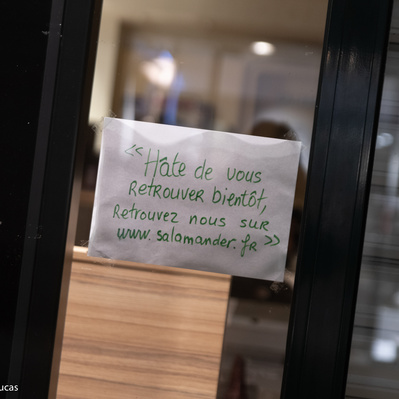 « Hâte de vous
Retrouver bientôt,
Retrouvez nous sur
www.salamander.fr »
ucas